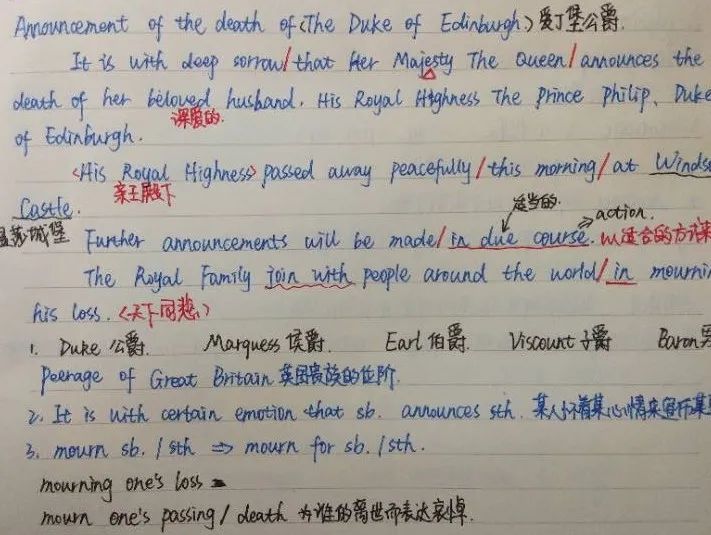 Announcement of the death of <The Duke of Edinburgh> 爱丁堡公爵.
It is with deep sorrow / that Her Majesty The Queen / announces the
death of her beloved husband. His Royal Highness The Prince Philip, Duke
深爱的.
of Edinburgh.
<His Royal Highness> passed away peacefully / this morning / at Winds
亲王殿下
Castle.
适当的. action.
莎城堡 Further announcements will be made / in due course. 以适合的方式来
The Royal Family join with people around the world / in mourni
his loss. <天下同悲>
1. Duke 公爵. Marquess 侯爵. Earl 伯爵. Viscount 子爵 Baron 男
Peerage of Great Britain 英国贵族的位阶.
2. It is with certain emotion that sb. announces sth. 某人怀着某心情来宣布某
3. mourn sb. / sth ⇒ mourn for sb. / sth.
mourning one's loss
mourn one's passing / death 为谁的离世而表达哀悼.